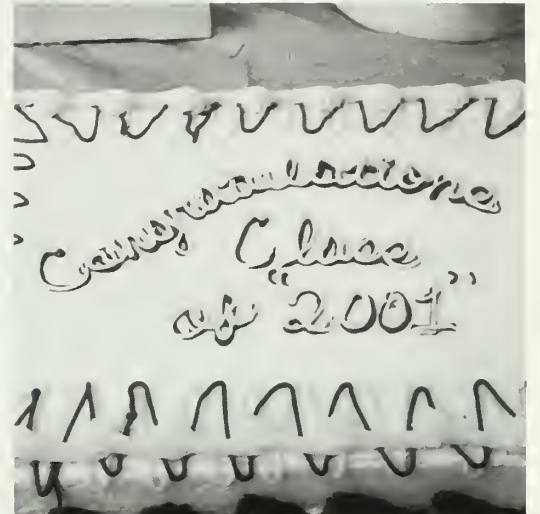 Congratulations
Class
of "2001"